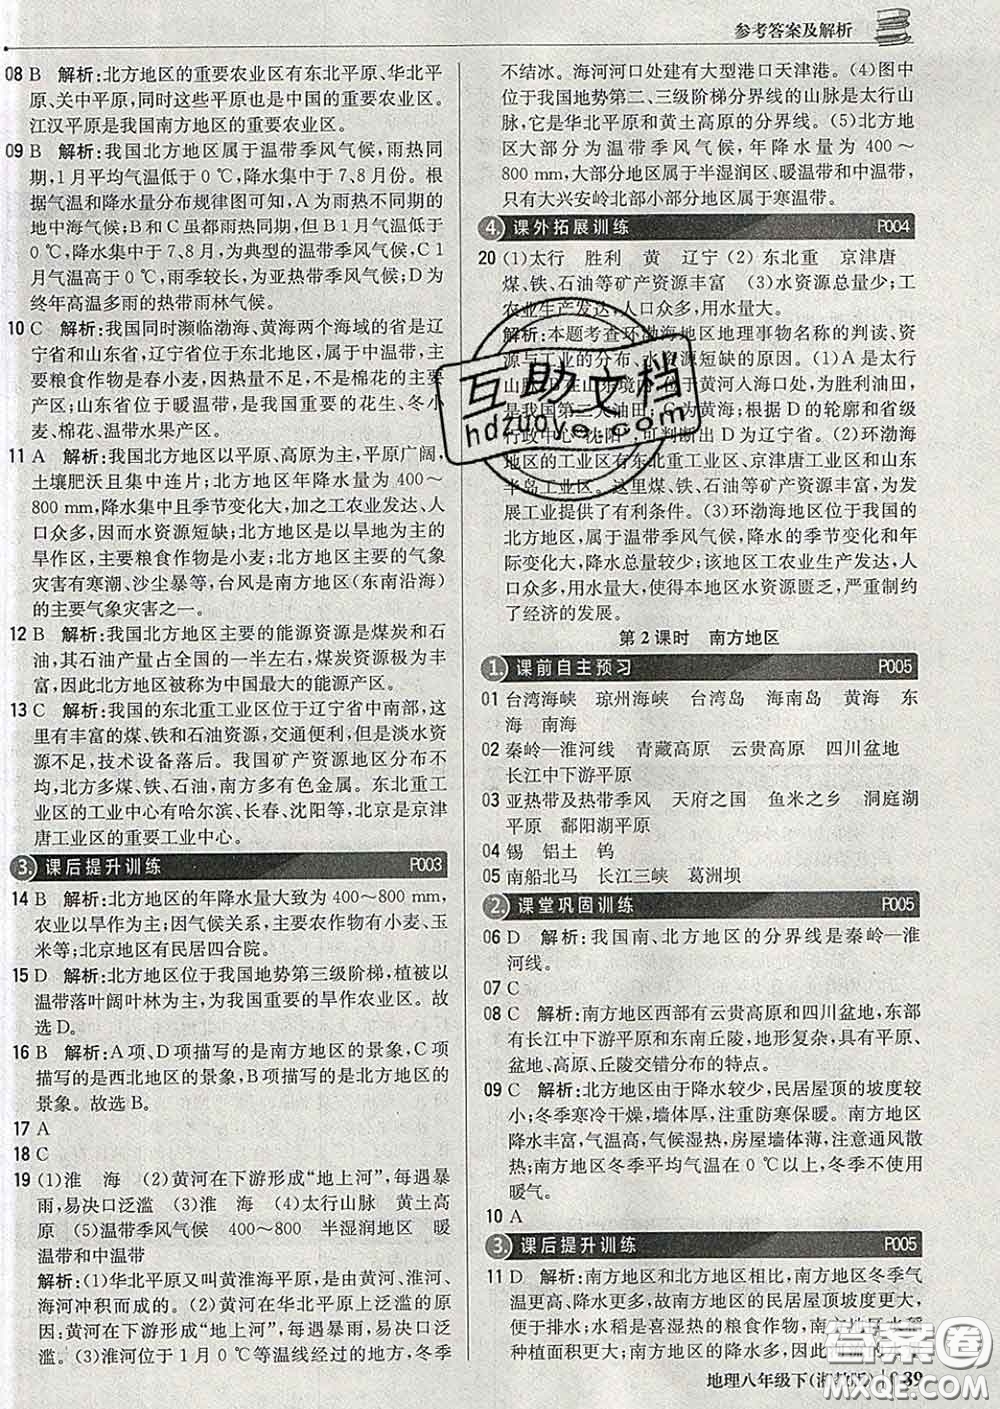 参考答案及解析
08 B 解析:北方地区的重要农业区有东北平原、华北平
原、关中平原,同时这些平原也是中国的重要农业区。
江汉平原是我国南方地区的重要农业区。
09 B 解析:我国北方地区属于温带季风气候,雨热同
期,1月平均气温低于0 ℃,降水集中于7、8月份。根
据气温和降水量分布规律图可知,A为雨热不同期的
地中海气候;B和C为雨热同期,但是B 1月气温低于
0 ℃,降水集中于7、8月,为典型的温带季风气候,C 1
月气温高于0 ℃,雨季较长,为亚热带季风气候;D为
终年高温多雨的热带雨林气候。
10 C 解析:我国同时濒临渤海、黄海两个海域的省是辽
宁省和山东省,辽宁省位于东北地区,属于中温带,主
要粮食作物是春小麦,因热量不足,不是棉花的主要
产区;山东省位于暖温带,是我国重要的花生、冬小
麦、棉花、温带水果产区。
11 A 解析:我国北方地区以平原、高原为主,平原广阔,
土壤肥沃且集中连片;北方地区年降水量为400～
800 mm,降水集中且季节变化大,加之工农业发达、人
口众多,因而水资源短缺;北方地区是以旱地为主的
旱作区,主要粮食作物是小麦;北方地区的主要气象
灾害有寒潮、沙尘暴等,台风是南方地区(东南沿海)
的主要气象灾害之一。
12 B 解析:我国北方地区主要的能源资源是煤炭和石
油,其石油产量占全国的一半左右,煤炭资源更是丰
富,因此北方地区被称为中国最大的能源产区。
13 C 解析:我国的东北重工业区位于辽宁省中南部,这
里有丰富的煤、铁和石油资源,交通便利,但是淡水资
源不足,技术设备落后。我国矿产资源地区分布不
均,北方多煤、铁、石油,南方多有色金属。东北重工
业区的工业中心有哈尔滨、长春、沈阳等,北京是京津
唐工业区的重要工业中心。
3. 课后提升训练 P003
14 B 解析:北方地区的年降水量大致为400～800 mm,
农业以旱作为主;因气候关系,主要农作物有小麦、玉
米等;北京地区有民居四合院。
15 D 解析:北方地区位于我国地势第三级阶梯,植被以
温带落叶阔叶林为主,为我国重要的旱作农业区。故
选D。
16 B 解析:A项、D项描写的是南方地区的景象,C项
描写的是西北地区的景象,B项描写的是北方地区的
景象。故选B。
17 A
18 C
19 (1)淮 海 (2)黄河在下游形成“地上河”,每遇暴
雨,易决口泛滥 (3)淮 海 (4)太行山脉 黄土高
原 (5)温带季风气候 400～800 半湿润地区 暖
温带和中温带
解析:(1)华北平原又叫黄淮海平原,是由黄河、淮河、
海河冲积而成的。(2)黄河在华北平原上泛滥的原
因:黄河在下游形成“地上河”,每遇暴雨,易决口泛
滥。(3)淮河位于1月0 ℃等温线经过的地方,冬季
不结冰。海河河口处建有大型港口天津港。(4)图中
位于我国地势第二、三级阶梯分界线的山脉是太行山
脉,它是华北平原和黄土高原的分界线。(5)北方地
区大部分为温带季风气候,年降水量为400～
800 mm,大部分地区属于半湿润区、暖温带和中温带,
只有大兴安岭北部小部分地区属于寒温带。
4. 课外拓展训练 P004
20 (1)太行 胜利 黄 辽宁 (2)东北重 京津唐
煤、铁、石油等矿产资源丰富 (3)水资源总量少;工
农业生产发达,人口众多,用水量大。
解析:本题考查环渤海地区地理事物名称的判读、资
源与工业的分布、水资源短缺的原因。(1)A是太行
山脉,B在山东境内,位于黄河入海口处,为胜利油田,
是我国第二大油田;C为黄海;根据D的轮廓和省级
行政中心“沈阳”,可判断出D为辽宁省。(2)环渤海
地区的工业区有东北重工业区、京津唐工业区和山东
半岛工业区。这里煤、铁、石油等矿产资源丰富,为发
展工业提供了有利条件。(3)环渤海地区位于我国的
北方地区,属于温带季风气候,降水的季节变化和年
际变化大,降水总量较少;该地区工农业生产发达,人
口众多,用水量大,使得本地区水资源匮乏,严重制约
了经济的发展。
第2课时 南方地区
1. 课前自主预习 P005
01 台湾海峡 琼州海峡 台湾岛 海南岛 黄海 东
海 南海
02 秦岭—淮河线 青藏高原 云贵高原 四川盆地
长江中下游平原
03 亚热带及热带季风 天府之国 鱼米之乡 洞庭湖
平原 鄱阳湖平原
04 锡 铝土 钨
05 南船北马 长江三峡 葛洲坝
2. 课堂巩固训练 P005
06 D 解析:我国南、北方地区的分界线是秦岭—淮
河线。
07 C
08 C 解析:南方地区西部有云贵高原和四川盆地,东部
有长江中下游平原和东南丘陵,地形复杂,具有平原、
盆地、高原、丘陵交错分布的特点。
09 C 解析:北方地区由于降水较少,民居屋顶的坡度较
小;冬季寒冷干燥,墙体厚,注重防寒保暖。南方地区
降水丰富,气温高,气候湿热,房屋墙体薄,注意通风散
热;南方地区冬季平均气温在0 ℃以上,冬季不使用
暖气。
10 A
3. 课后提升训练 P005
11 D 解析:南方地区和北方地区相比,南方地区冬季气
温更高、降水更多,故南方地区的民居屋顶坡度更大,
便于排水;水稻是喜湿热的粮食作物,南方地区水稻
种植面积更大;南方地区的降水更
地理八年级下 39
互助文档
hdzuoye.com
答案圈
MXQE.COM